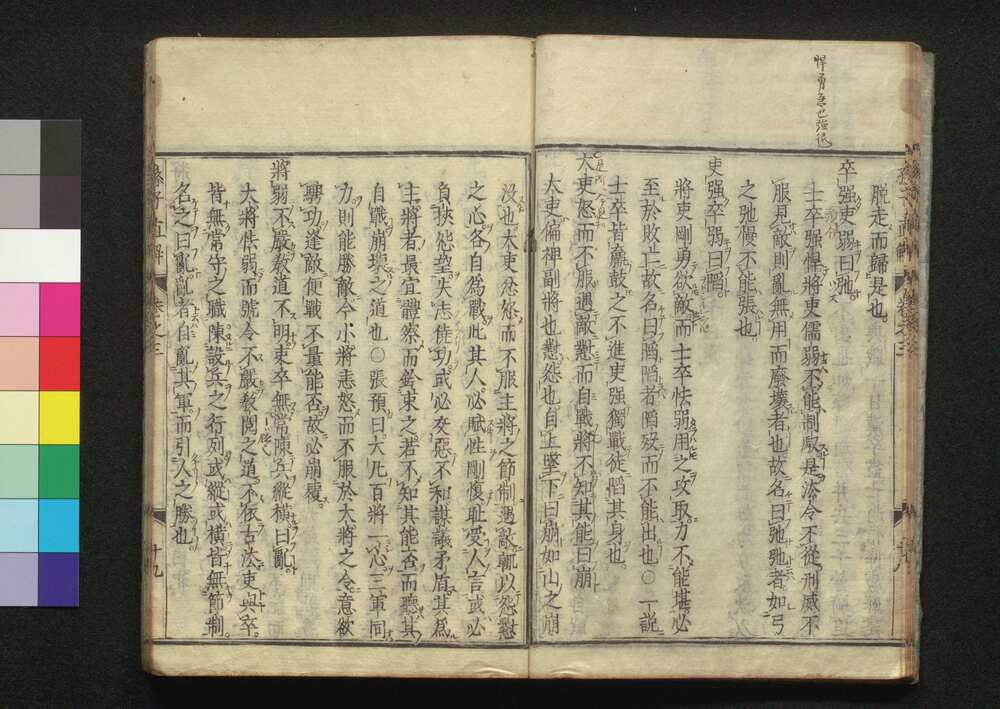 悍勇急也強很
脱走而歸是也
卒强吏弱曰弛
士卒强悍將吏儒弱不能制馭是法令不從刑威不
服見敵則亂無用而廢壊者也故名曰弛弛者如弓
之弛慢不能張也
吏强卒弱曰陷
將吏剛勇欲敵而士卒怯弱用之攻取力不能堪必
至於敗亡故名曰陷陷者陷歿而不能出也○一説
士卒皆羸鼓之不進吏强獨戰徒陷其身也
大吏怒而不服遇敵懟而自戰將不知其能曰崩
大吏偏裨副將也懟怨也自上墜下曰崩如山之崩
没也大吏忿怒而不服主將之節制遇敵輒以怨懟
之心各自爲戰此其人必賦性剛愎耻受人言或必
自挾怨望失志徒功或必交惡不和謀議矛盾其爲
主將者最宜體察而鈐束之若不知其能否而聽其
自戰崩壊之道也○張預曰大凡百將一心三軍同
力則能勝敵今小將恚怒而不服於大將之令意欲
騁功逢敵便戰不量能否故必崩覆
將弱不嚴教道不明吏卒無常陳兵縱橫曰亂
大將怯弱而號令不嚴教閲之道不依古法吏與卒
皆無常守之職陳設兵之行列或縱或橫皆無節制
名之曰亂亂者自亂其軍而引人之勝也
孫子直解
卷之三
十九